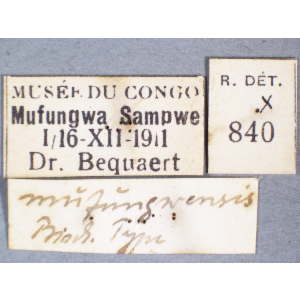 MUSÉE DU CONGO
Mufungwa Sampwe
1/16-XII-1911
Dr. Bequaert
R. DÉT.
X
840
mufungwensis
Type